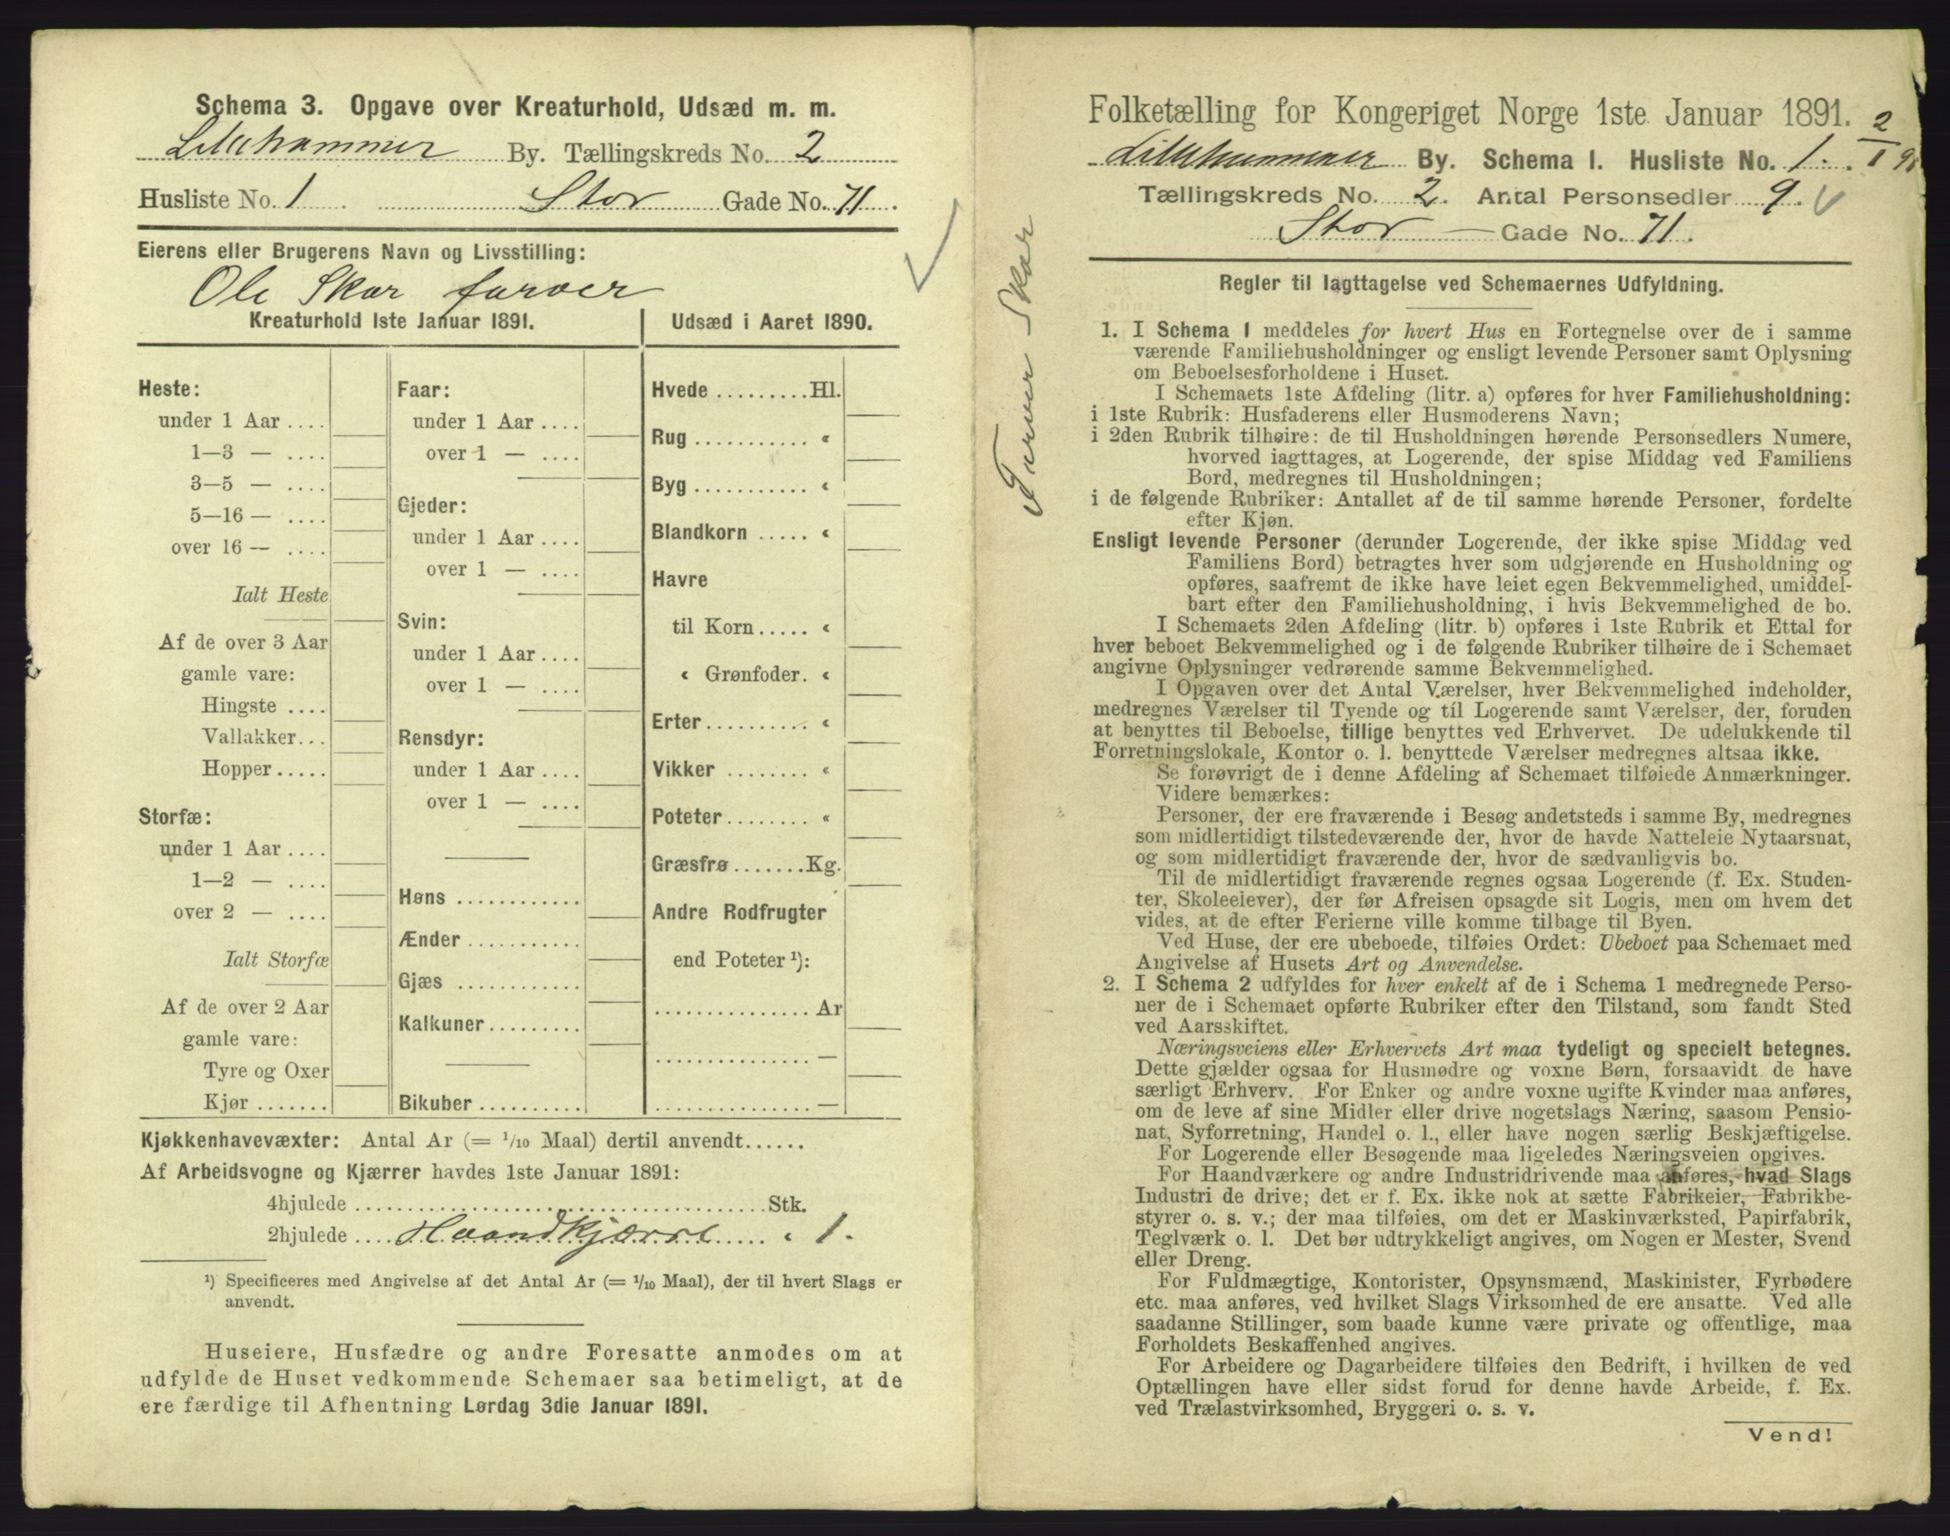 Schema 3. Opgave over Kreaturhold, Udsæd m. m.
Lillehammer By. Tællingskreds No. 2
Husliste No. 1. Stor Gade No. 71.
Eierens eller Brugerens Navn og Livsstilling:
Ole Skar farver
Kreaturhold 1ste Januar 1891.
Heste:
under 1 Aar ....
1—3 — ....
3—5 — ....
5—16 — ....
over 16 — ....
Ialt Heste
Af de over 3 Aar
gamle vare:
Hingste ....
Vallakker...
Hopper.....
Storfæ:
under 1 Aar ....
1—2 — ....
over 2 — ....
Ialt Storfæ
Af de over 2 Aar
gamle vare:
Tyre og Oxer
Kjør .......
Faar:
under 1 Aar ....
over 1 — ....
Gjeder:
under 1 Aar ....
over 1 — ....
Svin:
under 1 Aar ....
over 1 — ....
Rensdyr:
under 1 Aar ....
over 1 — ....
Høns ............
Ænder ...........
Gjæs ............
Kalkuner.........
Bikuber..........
Udsæd i Aaret 1890.
Hvede .........Hl.
Rug ........... «
Byg ........... «
Blandkorn ..... «
Havre
til Korn..... «
« Grønfoder. «
Erter.......... «
Vikker ........ «
Poteter........ «
Græsfrø .......Kg.
Andre Rodfrugter
end Poteter ¹):
............... Ar
............... —
............... —
Kjøkkenhavevæxter: Antal Ar (= 1/10 Maal) dertil anvendt......
Af Arbeidsvogne og Kjærrer havdes 1ste Januar 1891:
4hjulede ........................................Stk.
2hjulede .... Haandkjærre ..... « 1.
¹) Specificeres med Angivelse af det Antal Ar (= 1/10 Maal), der til hvert Slags er
anvendt.
Huseiere, Husfædre og andre Foresatte anmodes om at
udfylde de Huset vedkommende Schemaer saa betimeligt, at de
ere færdige til Afhentning Lørdag 3die Januar 1891.
Farver Skar
Folketælling for Kongeriget Norge 1ste Januar 1891.
2/1 91
Lillehammer By. Schema 1. Husliste No. 1.
Tællingskreds No. 2. Antal Personsedler 9.
Stor — Gade No. 71.
Regler til Iagttagelse ved Schemaernes Udfyldning.
1. I Schema 1 meddeles for hvert Hus en Fortegnelse over de i samme
værende Familiehusholdninger og ensligt levende Personer samt Oplysning
om Beboelsesforholdene i Huset.
I Schemaets 1ste Afdeling (litr. a) opføres for hver Familiehusholdning:
i 1ste Rubrik: Husfaderens eller Husmoderens Navn;
i 2den Rubrik tilhøire: de til Husholdningen hørende Personsedlers Numere,
hvorved iagttages, at Logerende, der spise Middag ved Familiens
Bord, medregnes til Husholdningen;
i de følgende Rubriker: Antallet af de til samme hørende Personer, fordelte
efter Kjøn.
Ensligt levende Personer (derunder Logerende, der ikke spise Middag ved
Familiens Bord) betragtes hver som udgjørende en Husholdning og
opføres, saafremt de ikke have leiet egen Bekvemmelighed, umiddel-
bart efter den Familiehusholdning, i hvis Bekvemmelighed de bo.
I Schemaets 2den Afdeling (litr. b) opføres i 1ste Rubrik et Ettal for
hver beboet Bekvemmelighed og i de følgende Rubriker tilhøire de i Schemaet
angivne Oplysninger vedrørende samme Bekvemmelighed.
I Opgaven over det Antal Værelser, hver Bekvemmelighed indeholder,
medregnes Værelser til Tyende og til Logerende samt Værelser, der, foruden
at benyttes til Beboelse, tillige benyttes ved Erhvervet. De udelukkende til
Forretningslokale, Kontor o. l. benyttede Værelser medregnes altsaa ikke.
Se forøvrigt de i denne Afdeling af Schemaet tilføiede Anmærkninger.
Videre bemærkes:
Personer, der ere fraværende i Besøg andetsteds i samme By, medregnes
som midlertidigt tilstedeværende der, hvor de havde Natteleie Nytaarsnat,
og som midlertidigt fraværende der, hvor de sædvanligvis bo.
Til de midlertidigt fraværende regnes ogsaa Logerende (f. Ex. Studen-
ter, Skoleelever), der før Afreisen opsagde sit Logis, men om hvem det
vides, at de efter Ferierne ville komme tilbage til Byen.
Ved Huse, der ere ubeboede, tilføies Ordet: Ubeboet paa Schemaet med
Angivelse af Husets Art og Anvendelse.
2. I Schema 2 udfyldes for hver enkelt af de i Schema 1 medregnede Perso-
ner de i Schemaet opførte Rubriker efter den Tilstand, som fandt Sted
ved Aarsskiftet.
Næringsveiens eller Erhvervets Art maa tydeligt og specielt betegnes.
Dette gjælder ogsaa for Husmødre og voxne Børn, forsaavidt de have
særligt Erhverv. For Enker og andre voxne ugifte Kvinder maa anføres,
om de leve af sine Midler eller drive nogetslags Næring, saasom Pensio-
nat, Syforretning, Handel o. l., eller have nogen særlig Beskjæftigelse.
For Logerende eller Besøgende maa ligeledes Næringsveien opgives.
For Haandværkere og andre Industridrivende maa anføres, hvad Slags
Industri de drive; det er f. Ex. ikke nok at sætte Fabrikeier, Fabrikbe-
styrer o. s. v.; der maa tilføies, om det er Maskinværksted, Papirfabrik,
Teglværk o. l. Det bør udtrykkeligt angives, om Nogen er Mester, Svend
eller Dreng.
For Fuldmægtige, Kontorister, Opsynsmænd, Maskinister, Fyrbødere
etc. maa anføres, ved hvilket Slags Virksomhed de ere ansatte. Ved alle
saadanne Stillinger, som baade kunne være private og offentlige, maa
Forholdets Beskaffenhed angives.
For Arbeidere og Dagarbeidere tilføies den Bedrift, i hvilken de ved
Optællingen have eller sidst forud for denne havde Arbeide, f. Ex.
ved Trælastvirksomhed, Bryggeri o. s. v.
Vend!